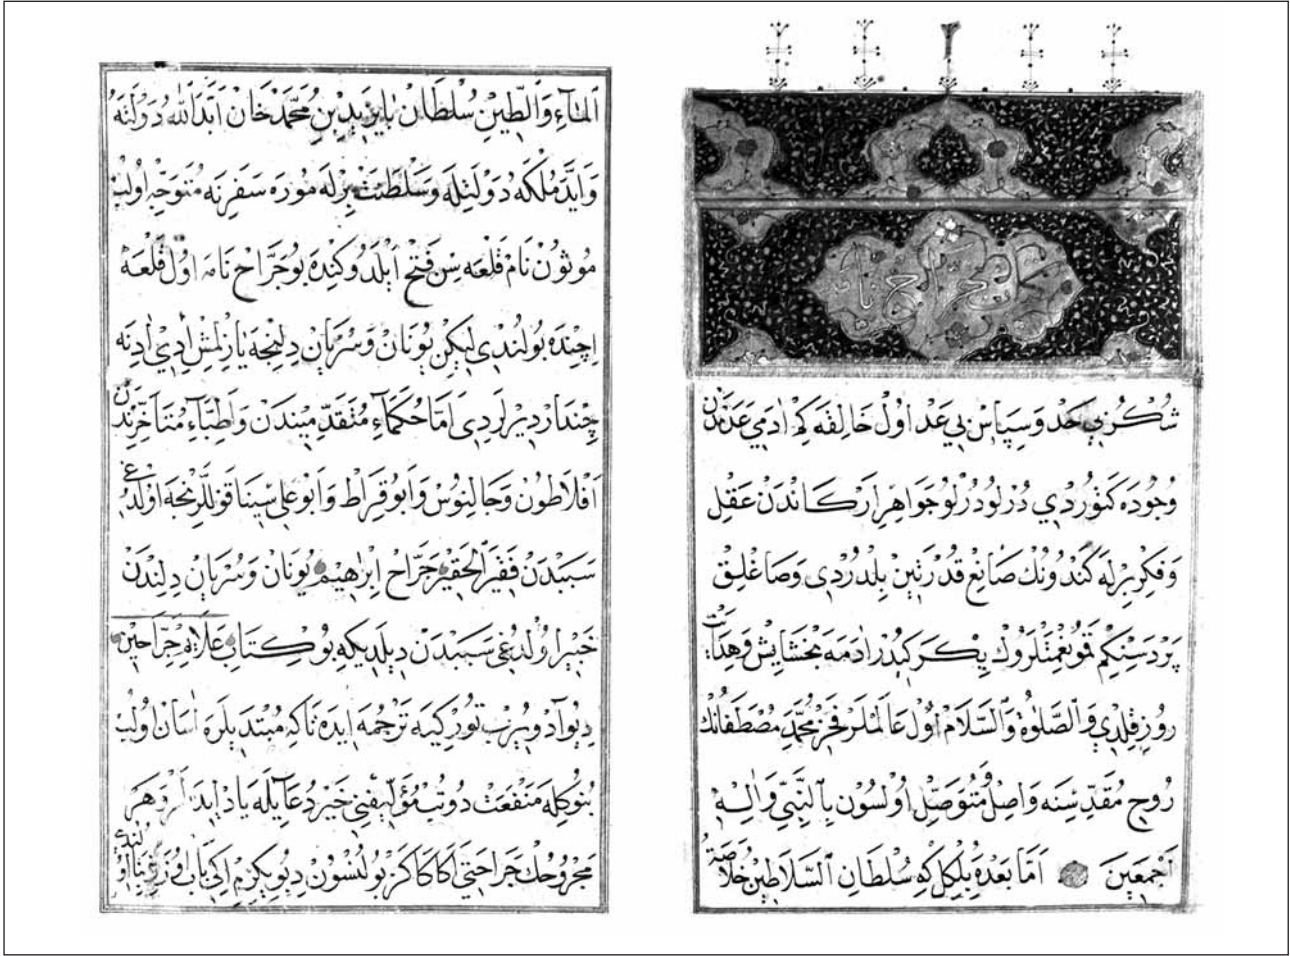 كتاب جراح نامه
شُكْرِ بِي حَدْ وَسِپَاسِ بِي عَدْ اَوُلْ خَالِقَه كِمْ اٰدَمِي عَدَمْدَن
وُجُودَه كَتوُرْدِي دُرْلوُ دُرْلوُ جَوَاهِرِ اَرْكَانْدَنْ عَقْلِ
وَفِكْرِ بِرْلَه كَنْدُونُكْ صَانِعْ قُدْرَتِينْ بِلْدُرْدِى وَصَاغْلِقْ
نِعْمَتْلَرُوكْ يِكْرَكِيدُرْ اٰدَمَه بَخْشَايِشْ وَهِدَايَتْ
رُوزِ قِلْدِي وَالصَّلٰوةُ وَالسَّلَامُ اوُلْ عَالَمْلَرْ فَخْرِ مُحَمَّدِ مُصْطَفَانُكْ
رُوحِ مُقَدَّسِنَه وَاصِلُ وَمُتَوَصِّلْ اُولْسُونْ بِالنَّبِيِّ وَاٰلِهِ
اَجْمَعِينَ اَمَّا بَعْدَهُ بِلْكِلْ كِه سُلْطَانِ السَّلَاطِينْ خُلَاصَةُ
اَلْمَآءِ وَالطِّينْ سُلْطَانْ بَايَزِيدْ بِنْ مُحَمَّدْ خَانْ اَبَّدَ اللّٰهُ دَوْلَتَهُ
وَاَيَّدَ مُلْكَهُ دَوْلَتِلَه وَسَلْطَنَتْ بِرْلَه مُورَه سَفَرِنَه مُتَوَجِّه اولُبْ
مُوثُونْ نَامْ قَلْعَه سِنْ فَتْحْ اَيْلَدُوكِنْدَه بُو جَرَّاحْ نَامَه اوُلْ قَلْعَه
اِچِنْدَه بُولُنْدِي لِيكِنْ يُونَانْ وَسُرْيَانْ دِلِنْجَه يَازِلْمِشْ اِدِي اَدِنَه
چِنْدَارْ دِيرْلَرْدِى اَمَّا حُكَمَاءِ مُتَقَدِّمِينْدَنْ وَاَطِبَّاءِ مُتَاَخِّرِينْدَنْ
اَفْلَاطُونْ وَجَالِنُوسْ وَاَبُو قِرَاطْ وَاَبُو عَلِي سِينَا قَوْللَّرِنْجَه اوْلْدُغِي
سَبَبْدَنْ فَقِيرُ الْحَقِيرْ جَرَّاحْ اِبْرٰهِيمْ يُونَانْ وَسُرْيَانْ دِلِنْدَنْ
خَبِيرْ اوُلْدُغِي سَبَبْدَنْ دِيلَدِيكِه بُو كِتَابِ عَلَائِمِ جَرَّاحِينْ
دِيُو آدْ وِيرُبْ تُورْكِيَه تَرْجُمَه اِيدَه تَاكِه مُبْتَدِيلَرَه اٰسَانْ اوُلُبْ
بُنُوكِلَه مَنْفَعَتْ دُوتُبْ مُؤَلِّفِنِي خَيْرِ دُعَا اِيلَه يَادْ اِيدَلَرْ وَهَرْ
مَجْرُوحُكْ جَرَاحَتِي اَكَا كَارَه بُولُنْسُونْ دِيُو يِكِرْمِ اِكِي بَابْ اوُزَرْنَا اوُلُنْدِي